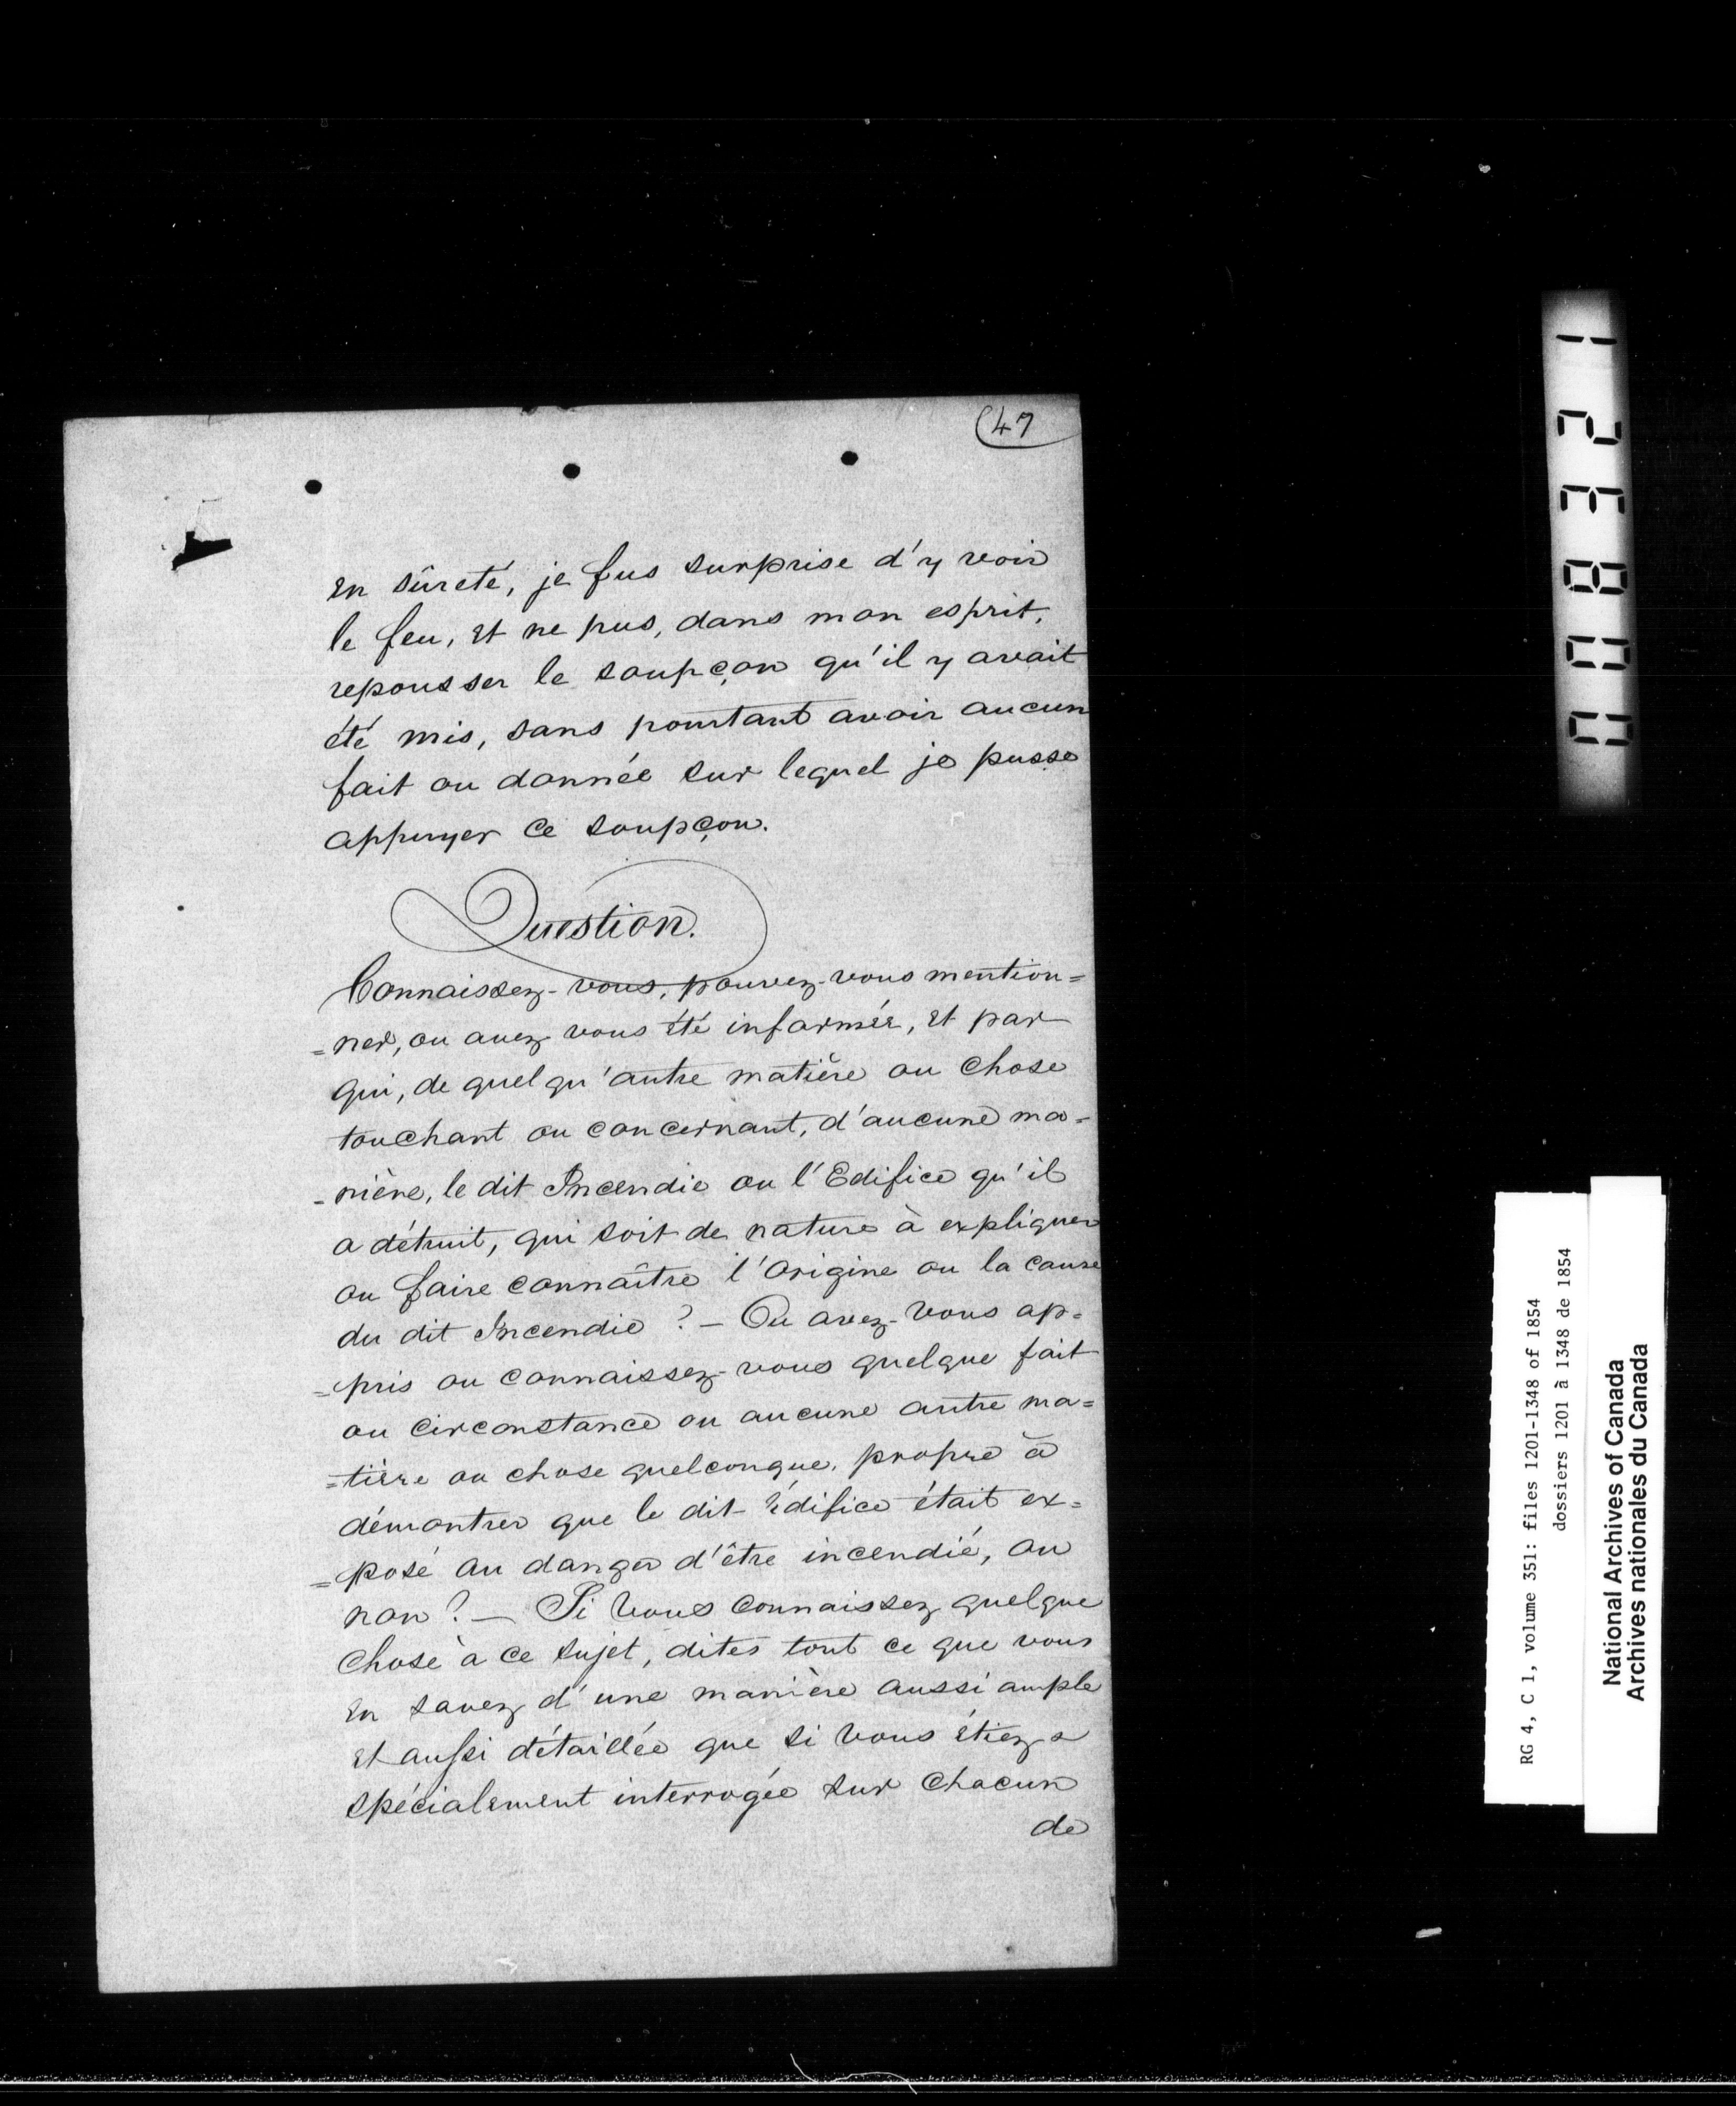 47
en sûreté, je fus surprise d'y voir
le feu, et ne pus, dans mon esprit,
repousser le soupçon qu'il y avait
été mis, sans pourtant avoir aucun
fait ou donnée sur lequel je pusse
appuyer ce soupçon.
Question.
Connaissez-vous, pouvez-vous mention=
=ner, ou avez vous été informée, et par
qui, de quelqu'autre matière ou chose
touchant ou concernant, d'aucune ma-
-nière, le dit Incendie ou l'Edifice qu'il
a détruit, qui soit de nature à expliquer
ou faire connaître l'origine ou la cause
du dit Incendie ? — Ou avez-vous ap=
=pris ou connaissez-vous quelque fait
ou circonstance ou aucune autre ma=
=tière ou chose quelconque, propre à
démontrer que le dit édifice était ex=
=posé au danger d'être incendié, ou
non ? — Si vous connaissez quelque
chose à ce sujet, dites tout ce que vous
en savez d'une manière aussi ample
et aussi détaillée que si vous étiez
spécialement interrogée sur chacun
de
12800
RG 4, C 1, volume 351: files 1201-1348 of 1854
dossiers 1201 à 1348 de 1854
National Archives of Canada
Archives nationales du Canada